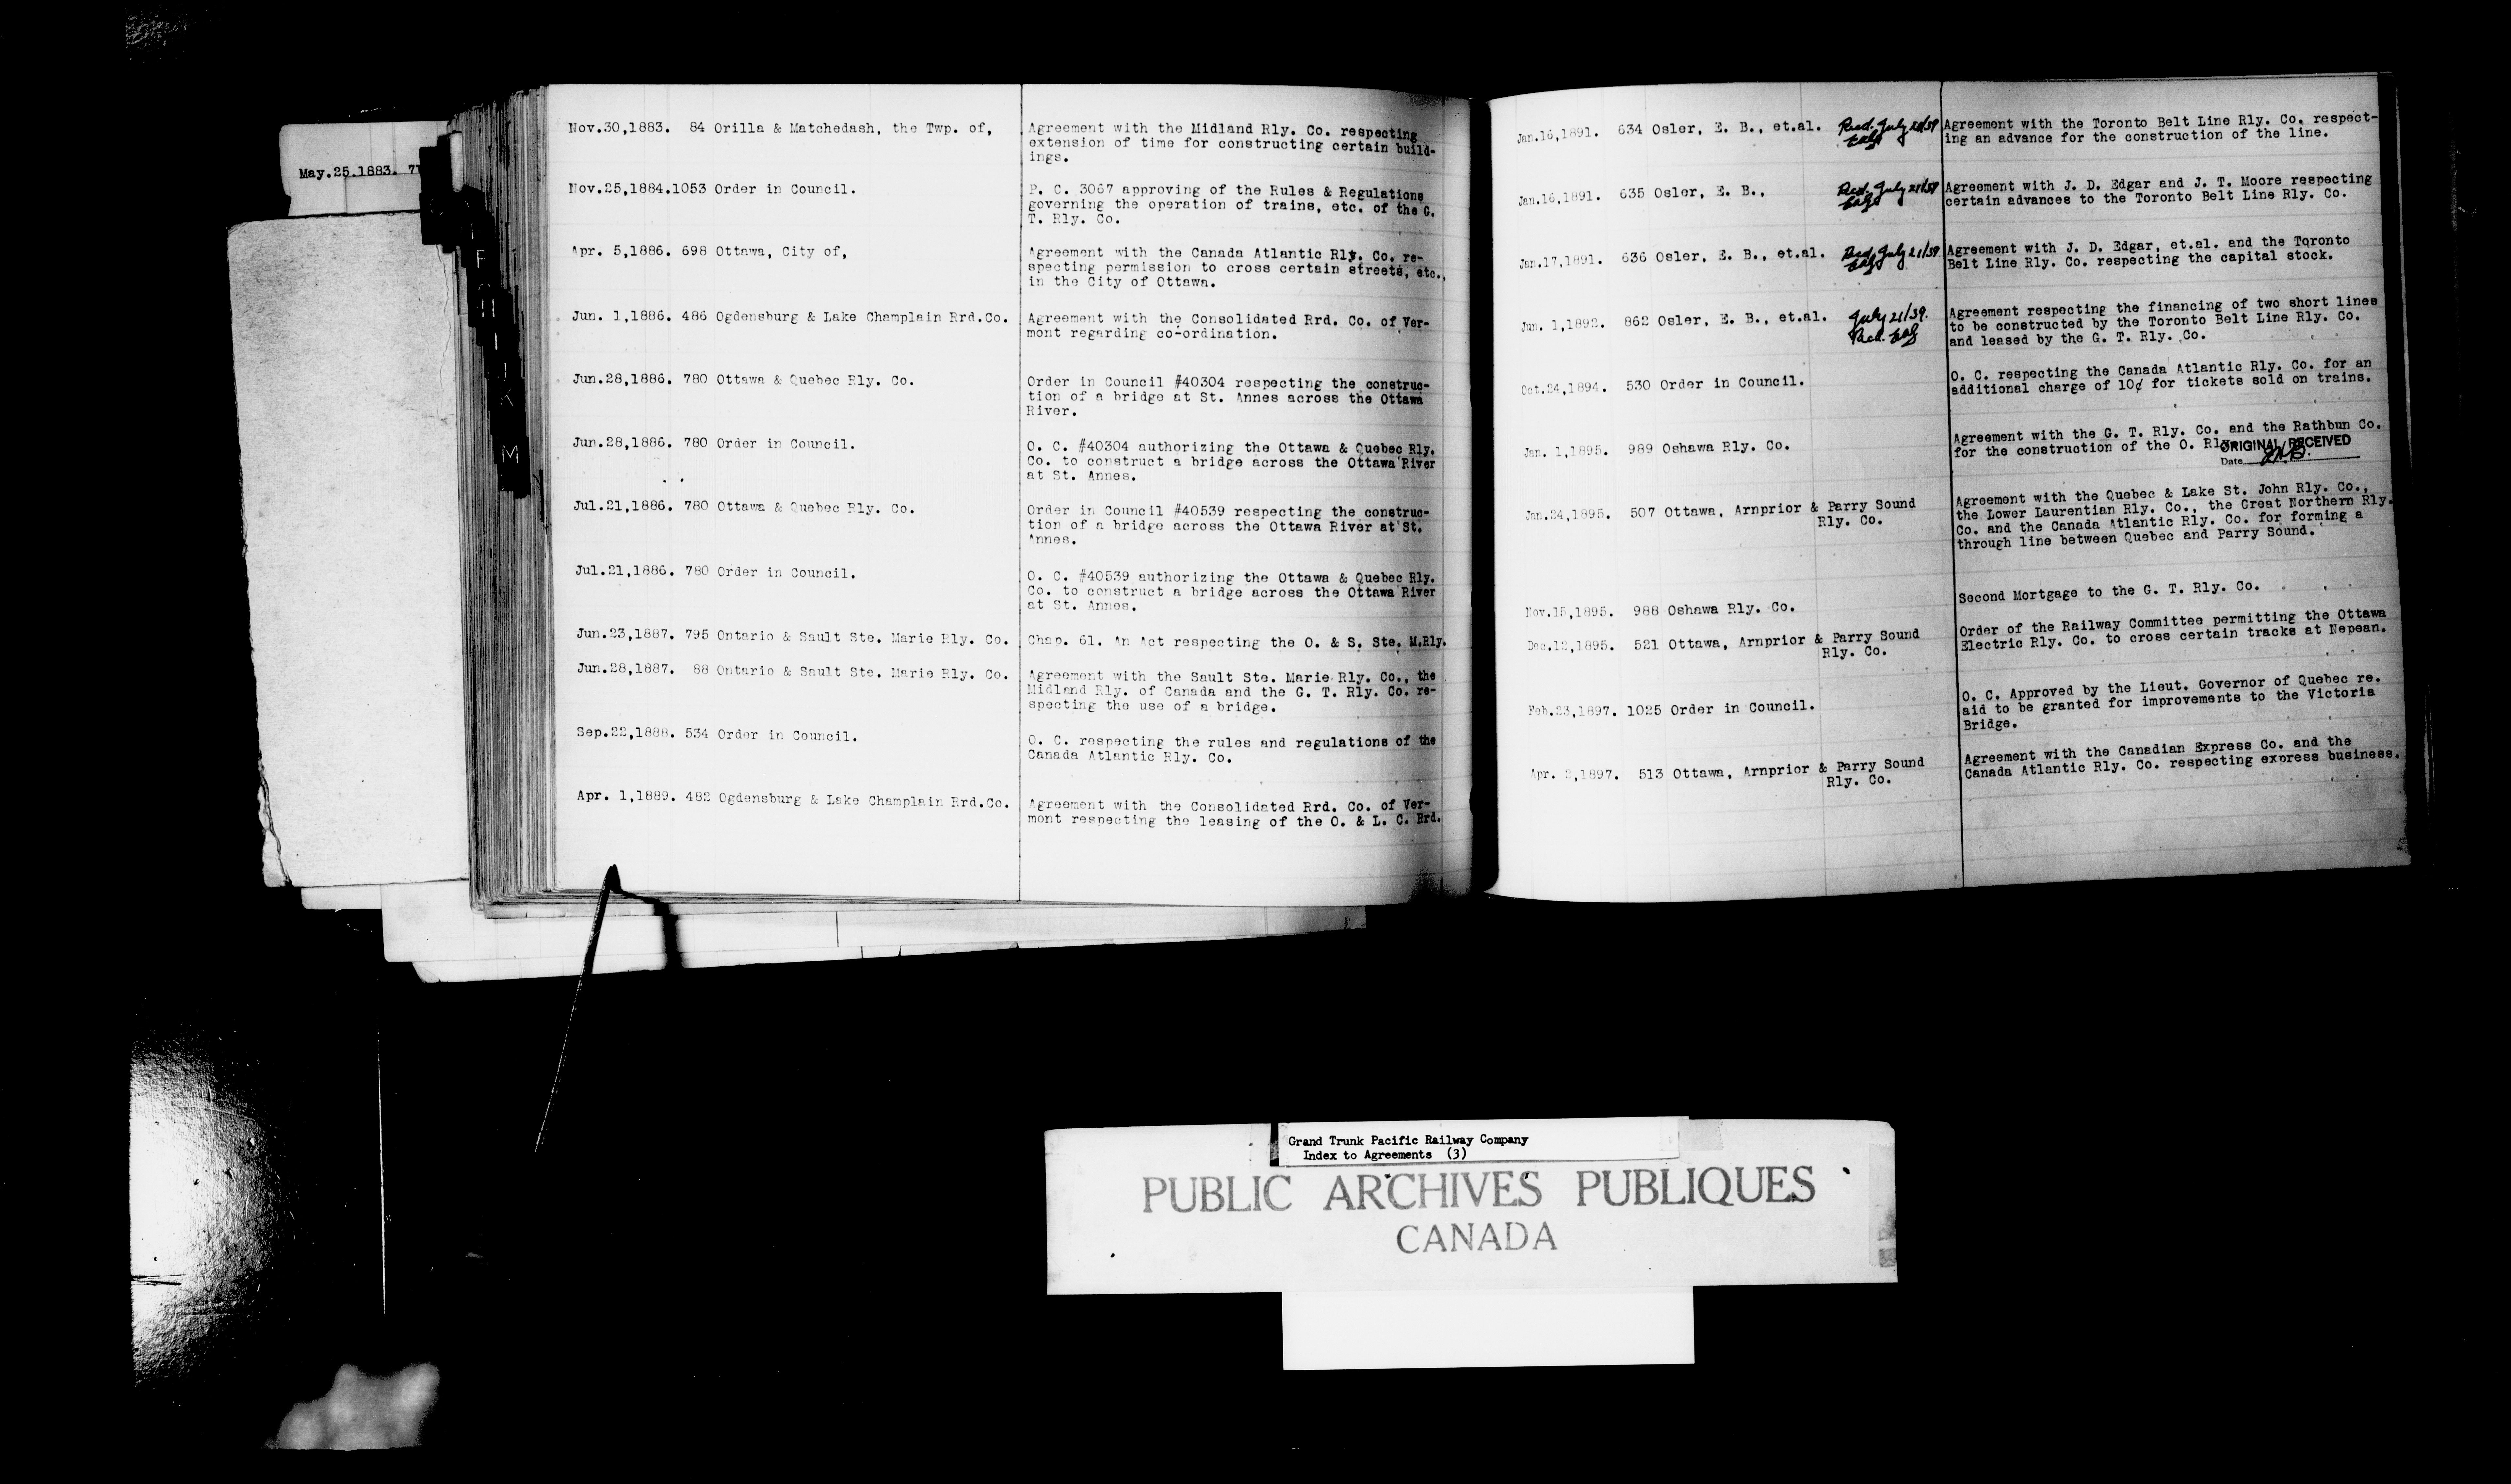 May.25.1883. 71
F
H
I
J
K
M
Nov.30,1883. 84 Orilla & Matchedash, the Twp. of,
Agreement with the Midland Rly. Co. respecting
extension of time for constructing certain build-
ings.
Nov.25,1884.1053 Order in Council.
P. C. 3067 approving of the Rules & Regulations
governing the operation of trains, etc. of the G.
T. Rly. Co.
Apr. 5,1886. 698 Ottawa, City of,
Agreement with the Canada Atlantic Rly. Co. re-
specting permission to cross certain streets, etc.,
in the City of Ottawa.
Jun. 1,1886. 486 Ogdensburg & Lake Champlain Rrd.Co.
Agreement with the Consolidated Rrd. Co. of Ver-
mont regarding co-ordination.
Jun.28,1886. 780 Ottawa & Quebec Rly. Co.
Order in Council #40304 respecting the construc-
tion of a bridge at St. Annes across the Ottawa
River.
Jun.28,1886. 780 Order in Council.
O. C. #40304 authorizing the Ottawa & Quebec Rly.
Co. to construct a bridge across the Ottawa River
at St. Annes.
Jul.21,1886. 780 Ottawa & Quebec Rly. Co.
Order in Council #40539 respecting the construc-
tion of a bridge across the Ottawa River at St.
Annes.
Jul.21,1886. 780 Order in Council.
O. C. #40539 authorizing the Ottawa & Quebec Rly.
Co. to construct a bridge across the Ottawa River
at St. Annes.
Jun.23,1887. 795 Ontario & Sault Ste. Marie Rly. Co.
Chap. 61. An Act respecting the O. & S. Ste. M.Rly.
Jun.28,1887. 88 Ontario & Sault Ste. Marie Rly. Co.
Agreement with the Sault Ste. Marie Rly. Co., the
Midland Rly. of Canada and the G. T. Rly. Co. re-
specting the use of a bridge.
Sep.22,1888. 534 Order in Council.
O. C. respecting the rules and regulations of the
Canada Atlantic Rly. Co.
Apr. 1,1889. 482 Ogdensburg & Lake Champlain Rrd.Co.
Agreement with the Consolidated Rrd. Co. of Ver-
mont respecting the leasing of the O. & L. C. Rrd.
Jan.16,1891. 634 Osler, E. B., et.al. Recd. July 21/39
Agreement with the Toronto Belt Line Rly. Co. respect-
ing an advance for the construction of the line.
Jan.16,1891. 635 Osler, E. B., Recd. July 21/39
Agreement with J. D. Edgar and J. T. Moore respecting
certain advances to the Toronto Belt Line Rly. Co.
Jan.17,1891. 636 Osler, E. B., et.al. Recd. July 21/39
Agreement with J. D. Edgar, et.al. and the Toronto
Belt Line Rly. Co. respecting the capital stock.
Jun. 1,1892. 862 Osler, E. B., et.al. July 21/39.
Recd.
Agreement respecting the financing of two short lines
to be constructed by the Toronto Belt Line Rly. Co.
and leased by the G. T. Rly. Co.
Oct.24,1894. 530 Order in Council.
O. C. respecting the Canada Atlantic Rly. Co. for an
additional charge of 10¢ for tickets sold on trains.
Jan. 1,1895. 989 Oshawa Rly. Co.
Agreement with the G. T. Rly. Co. and the Rathbun Co.
for the construction of the O. Rly.
ORIGINAL RECEIVED
Date
Jan.24,1895. 507 Ottawa, Arnprior & Parry Sound
Rly. Co.
Agreement with the Quebec & Lake St. John Rly. Co.,
the Lower Laurentian Rly. Co., the Great Northern Rly.
Co. and the Canada Atlantic Rly. Co. for forming a
through line between Quebec and Parry Sound.
Nov.15,1895. 988 Oshawa Rly. Co.
Second Mortgage to the G. T. Rly. Co.
Dec.12,1895. 521 Ottawa, Arnprior & Parry Sound
Rly. Co.
Order of the Railway Committee permitting the Ottawa
Electric Rly. Co. to cross certain tracks at Nepean.
Feb.23,1897. 1025 Order in Council.
O. C. Approved by the Lieut. Governor of Quebec re.
aid to be granted for improvements to the Victoria
Bridge.
Apr. 2,1897. 513 Ottawa, Arnprior & Parry Sound
Rly. Co.
Agreement with the Canadian Express Co. and the
Canada Atlantic Rly. Co. respecting express business.
Grand Trunk Pacific Railway Company
Index to Agreements (3)
PUBLIC ARCHIVES PUBLIQUES
CANADA